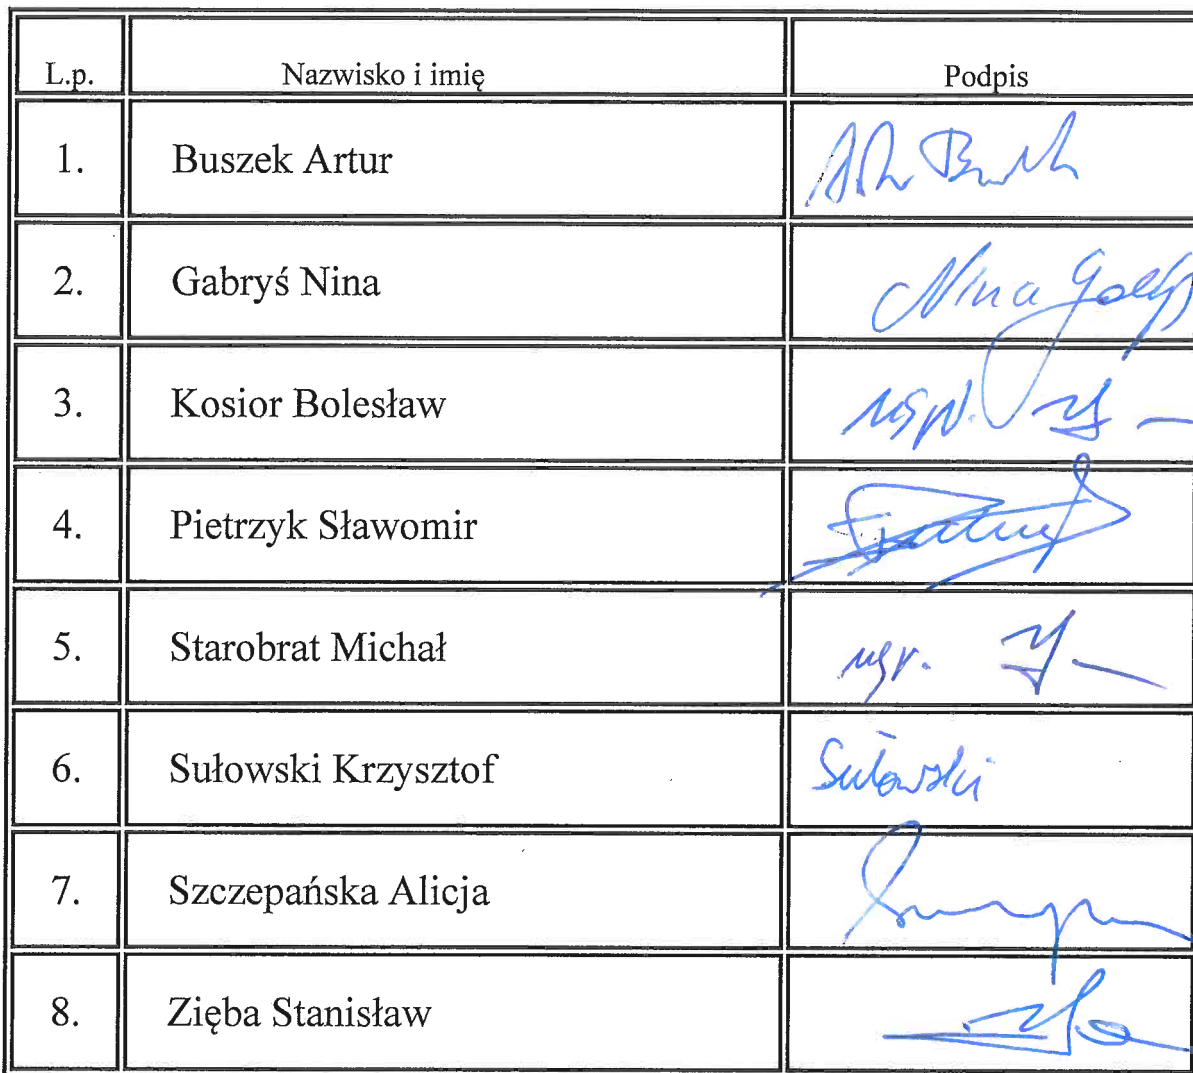 L.p. Nazwisko i imię Podpis
1. Buszek Artur
2. Gabryś Nina Nina
3. Kosior Bolesław
4. Pietrzyk Sławomir
5. Starobrat Michał
6. Sułowski Krzysztof Sułowski
7. Szczepańska Alicja
8. Zięba Stanisław